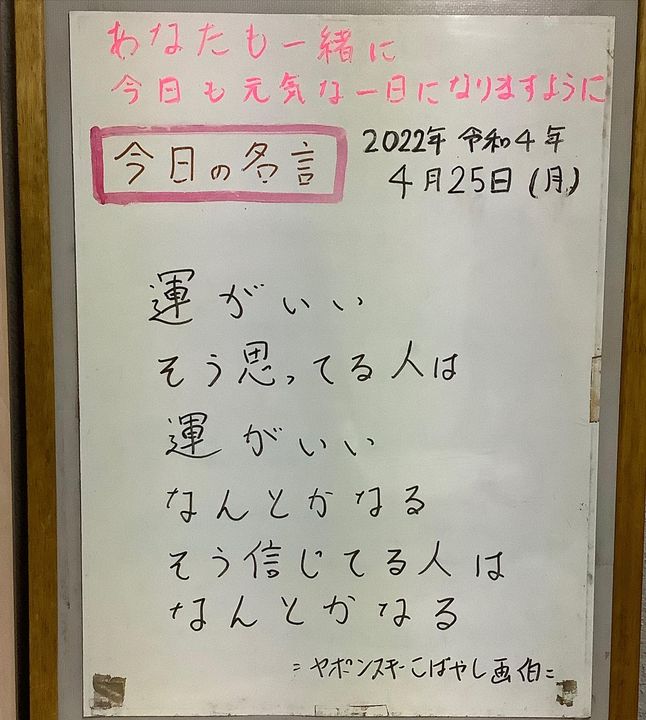 あなたも一緒に
今日も元気な一日になりますように
今日の名言
2022年 令和4年
4月25日(月)
運がいい
そう思ってる人は
運がいい
なんとかなる
そう信じてる人は
なんとかなる
=ヤポンスキーこばやし画伯=